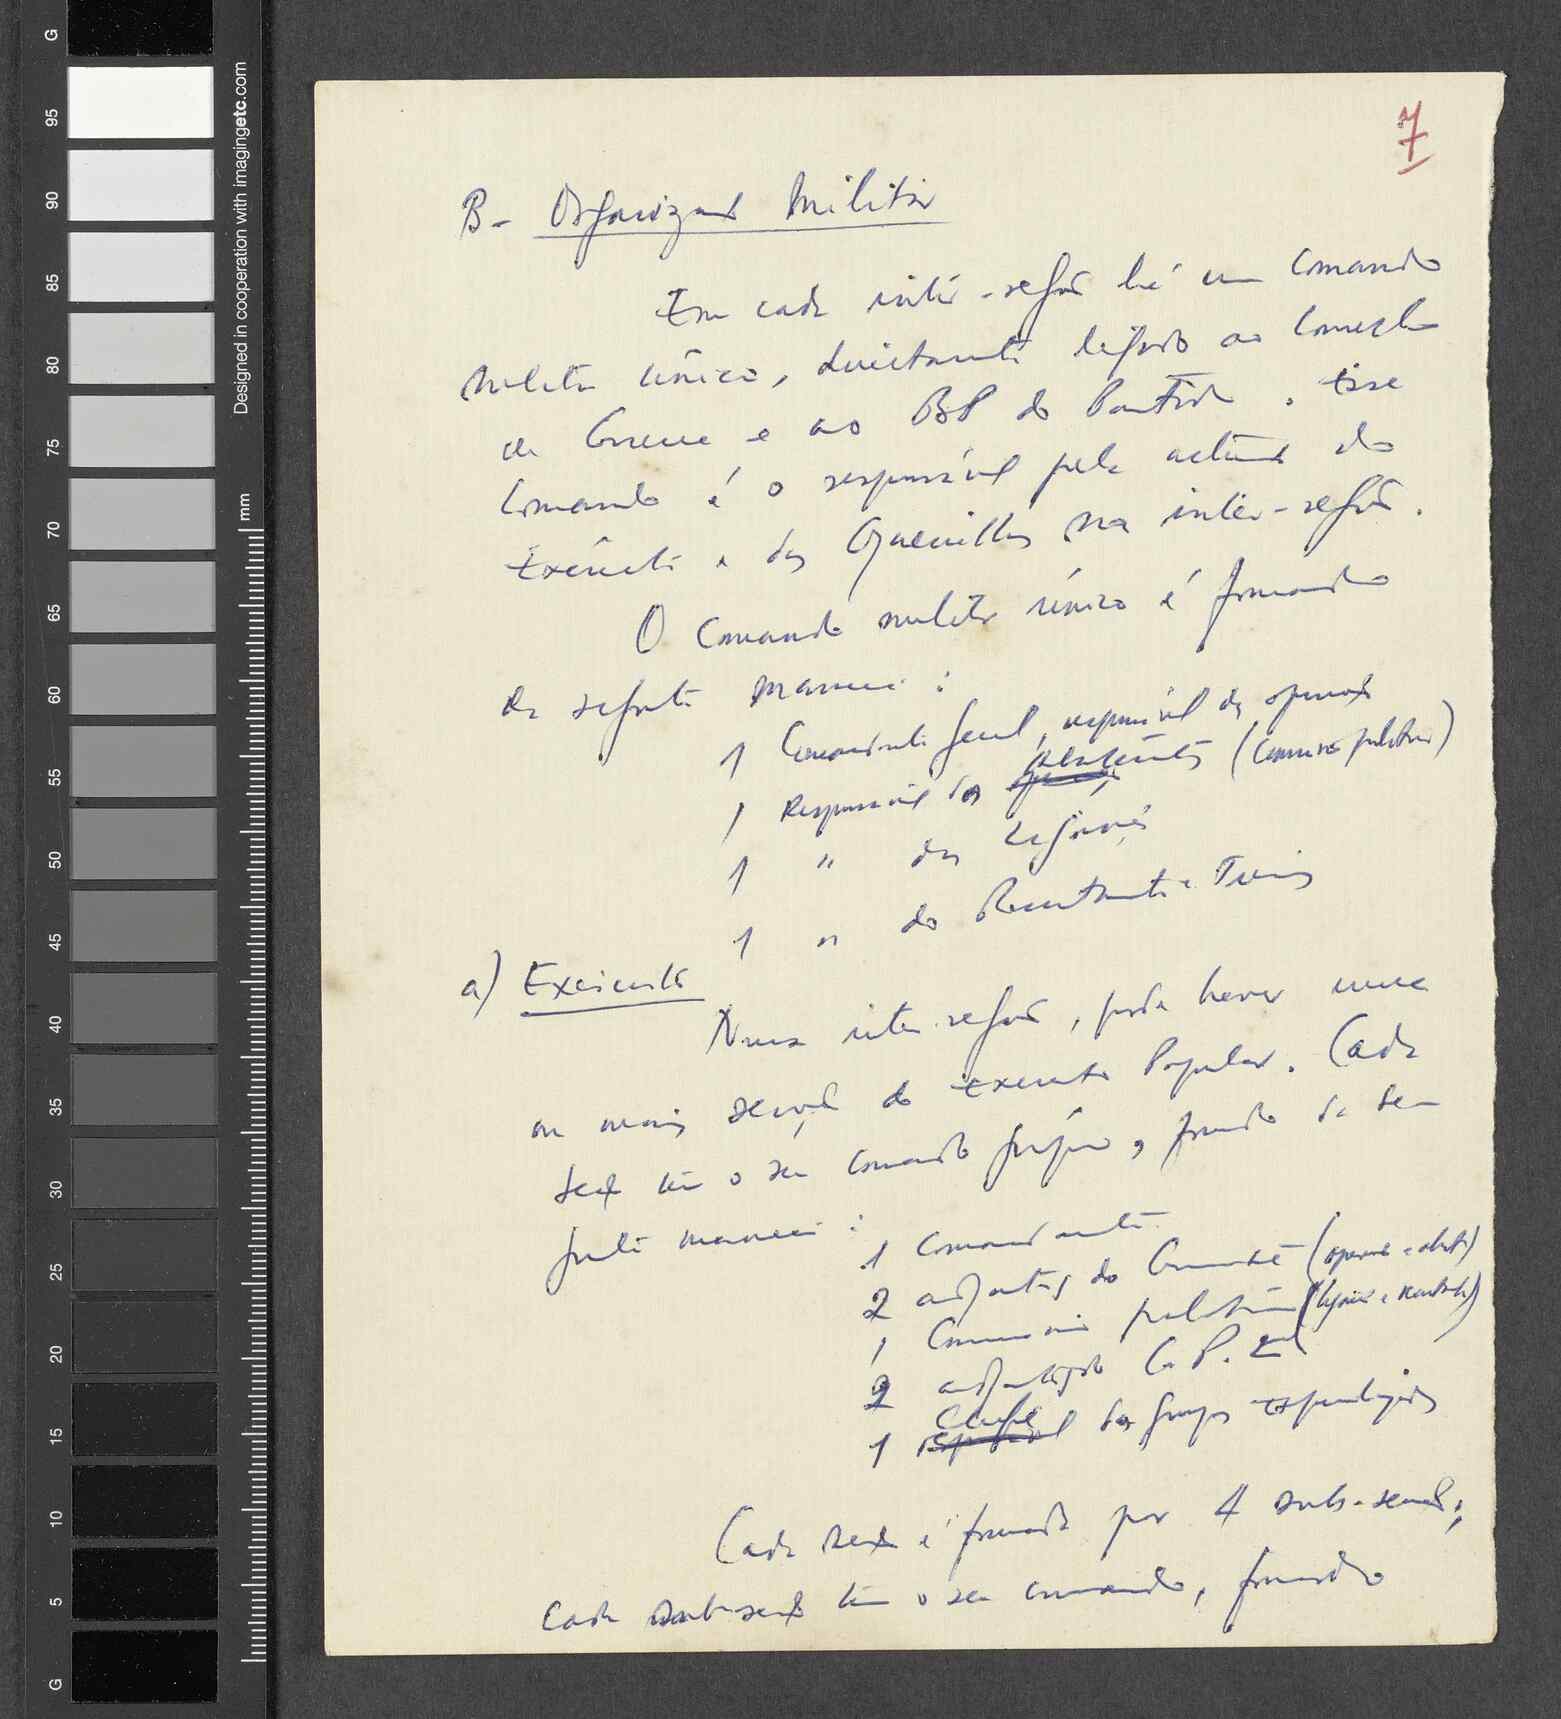 7
B- Organização Militar
Em cada inter-região há um Comando
Militar único, directamente ligado ao Conselho
de Guerra e ao BP do Partido. Esse
Comando é o responsável pela actividade do
Exército e das Guerrilhas na inter-região.
O Comando militar único é formado
da seguinte maneira:
1 Comandante geral, responsável das operações
1 Responsável dos (Comissário político)
1 " das Ligações
1 " do Recrutamento e Treino
a) Exército
Numa inter-região, pode haver uma
ou mais secções do Exército Popular. Cada
secção tem o seu comando próprio, formado da se-
guinte maneira:
1 Comandante
2 adjuntos do Comandante (operações e
1 Comissário político (ligações e
2 adjuntos do C. P.
1 Chefe dos grupos Especializados
Cada secção é formada por 4 sub-secções;
cada sub-secção tem o seu comando, formado
G
95
90
85
80
75
70
65
60
55
50
45
40
35
30
25
20
15
10
5
G
Designed in cooperation with imagingetc.com
mm